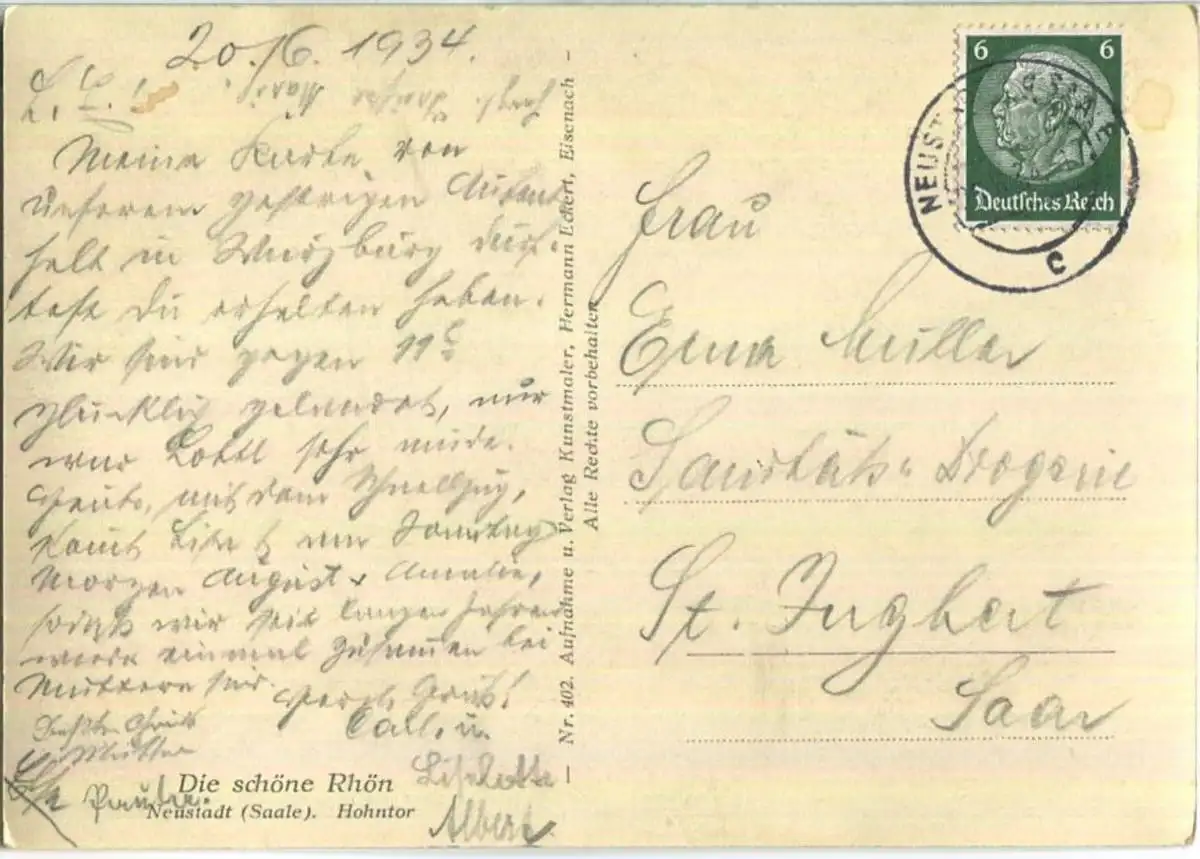 20./6. 1934.
L. E.!
Meine Karte von
unserem gestrigen Aufent
halt in Würzburg dürf-
test Du erhalten haben.
Wir sind gegen 11
glücklich gelandet, nur
war Lottl sehr müde.
Heute, mit dem Schnellzug,
kommt und Sonntag
Morgen August & Amalie,
sodaß wir seit langen Jahren
wieder einmal zusammen bei
Muttern sind.
Herzl. Gruß!
Mutter
Lieselotte
Albert
Paula.
Die schöne Rhön
Neustadt (Saale). Hohntor
Nr. 402. Aufnahme u. Verlag Kunstmaler, Hermann Eckert, Eisenach
Alle Rechte vorbehalten
6 6
Deutsches Reich
NEUST
C
Frau
Erna Müller
Sanitäts-Drogerie
St. Ingbert
Saar